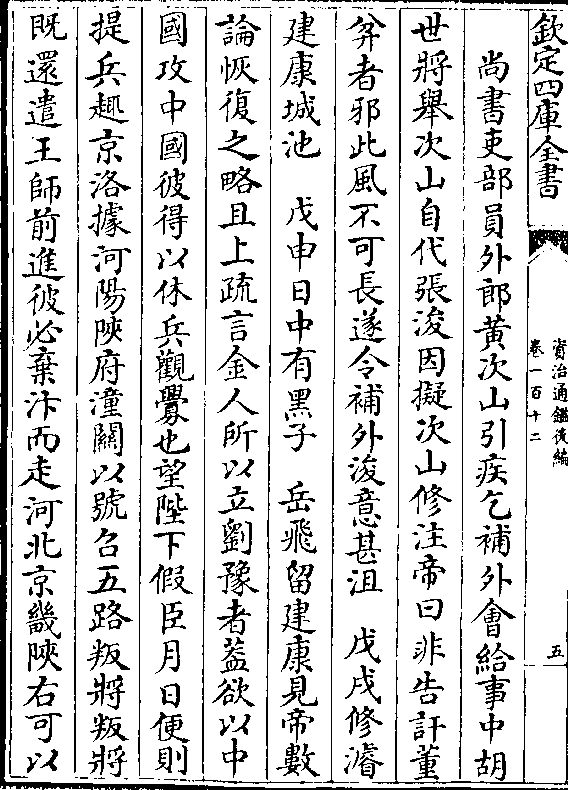 欽定四庫全書
資治通鑑後編
卷一百十二
五
尚書吏部員外郎黃次山引疾乞補外會給事中胡
世將舉次山自代張浚因擬次山修注帝曰非告訐董
弅者邪此風不可長遂令補外浚意甚沮　戊戌修濬
建康城池　戊申日中有黑子　岳飛留建康見帝數
論恢復之略且上疏言金人所以立劉豫者葢欲以中
國攻中國彼得以休兵觀釁也望陛下假臣月日便則
提兵趣京洛據河陽陜府潼關以號召五路叛將叛將
既還遣王師前進彼必棄汴而走河北京畿陜右可以